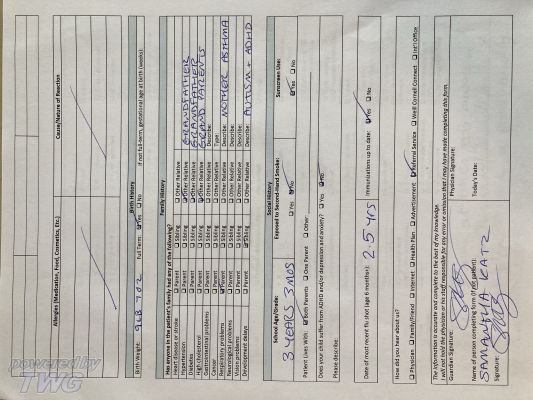 Allergies (Medication, Food, Cosmetics, Etc.) Cause/Nature of Reaction
Birth History
Birth Weight: 9LB 7 OZ Full Term: ☑ Yes ☐ No If not full-term, gestational age at birth (weeks):
Family History
Has anyone in the patient's family had any of the following?
Heart disease or stroke ☐ Parent ☐ Sibling ☐ Other Relative
Hypertension ☐ Parent ☐ Sibling ☑ Other Relative GRANDFATHER
Diabetes ☐ Parent ☐ Sibling ☑ Other Relative GRANDFATHER
High cholesterol ☐ Parent ☐ Sibling ☑ Other Relative GRAND PARENTS
Gastrointestinal problems ☐ Parent ☐ Sibling ☐ Other Relative Describe:
Cancer ☐ Parent ☐ Sibling ☐ Other Relative Type:
Respiratory problems ☑ Parent ☐ Sibling ☐ Other Relative Describe: MOTHER ASTHMA
Neurological problems ☐ Parent ☐ Sibling ☐ Other Relative Describe:
Vision problems ☐ Parent ☐ Sibling ☐ Other Relative Describe:
Development delays ☐ Parent ☑ Sibling ☐ Other Relative Describe: AUTISM + ADHD
Social History
School Age/Grade: Exposed to Second-Hand Smoke: Sunscreen Use:
3 YEARS 3 MOS ☐ Yes ☑ No ☑ Yes ☐ No
Patient Lives With: ☑ Both Parents ☐ One Parent ☐ Other
Does your child suffer from ADHD and/or depression and anxiety? ☐ Yes ☑ No
Please describe:
Date of most recent flu shot (age 6 months): 2.5 YRS Immunizations up to date: ☑ Yes ☐ No
How did you hear about us?
☐ Physician ☐ Family/Friend ☐ Internet ☐ Health Plan ☐ Advertisement ☑ Referral Service ☐ Weill Cornell Connect ☐ Int'l Office
The information is accurate and complete to the best of my knowledge.
I will not hold the physician or his staff responsible for any error or omission that I may have made completing this form.
Guardian Signature: Physician Signature:
Name of person completing form (if not patient): Today's Date:
SAMANTHA KATZ
Signature:
powered by
TWG